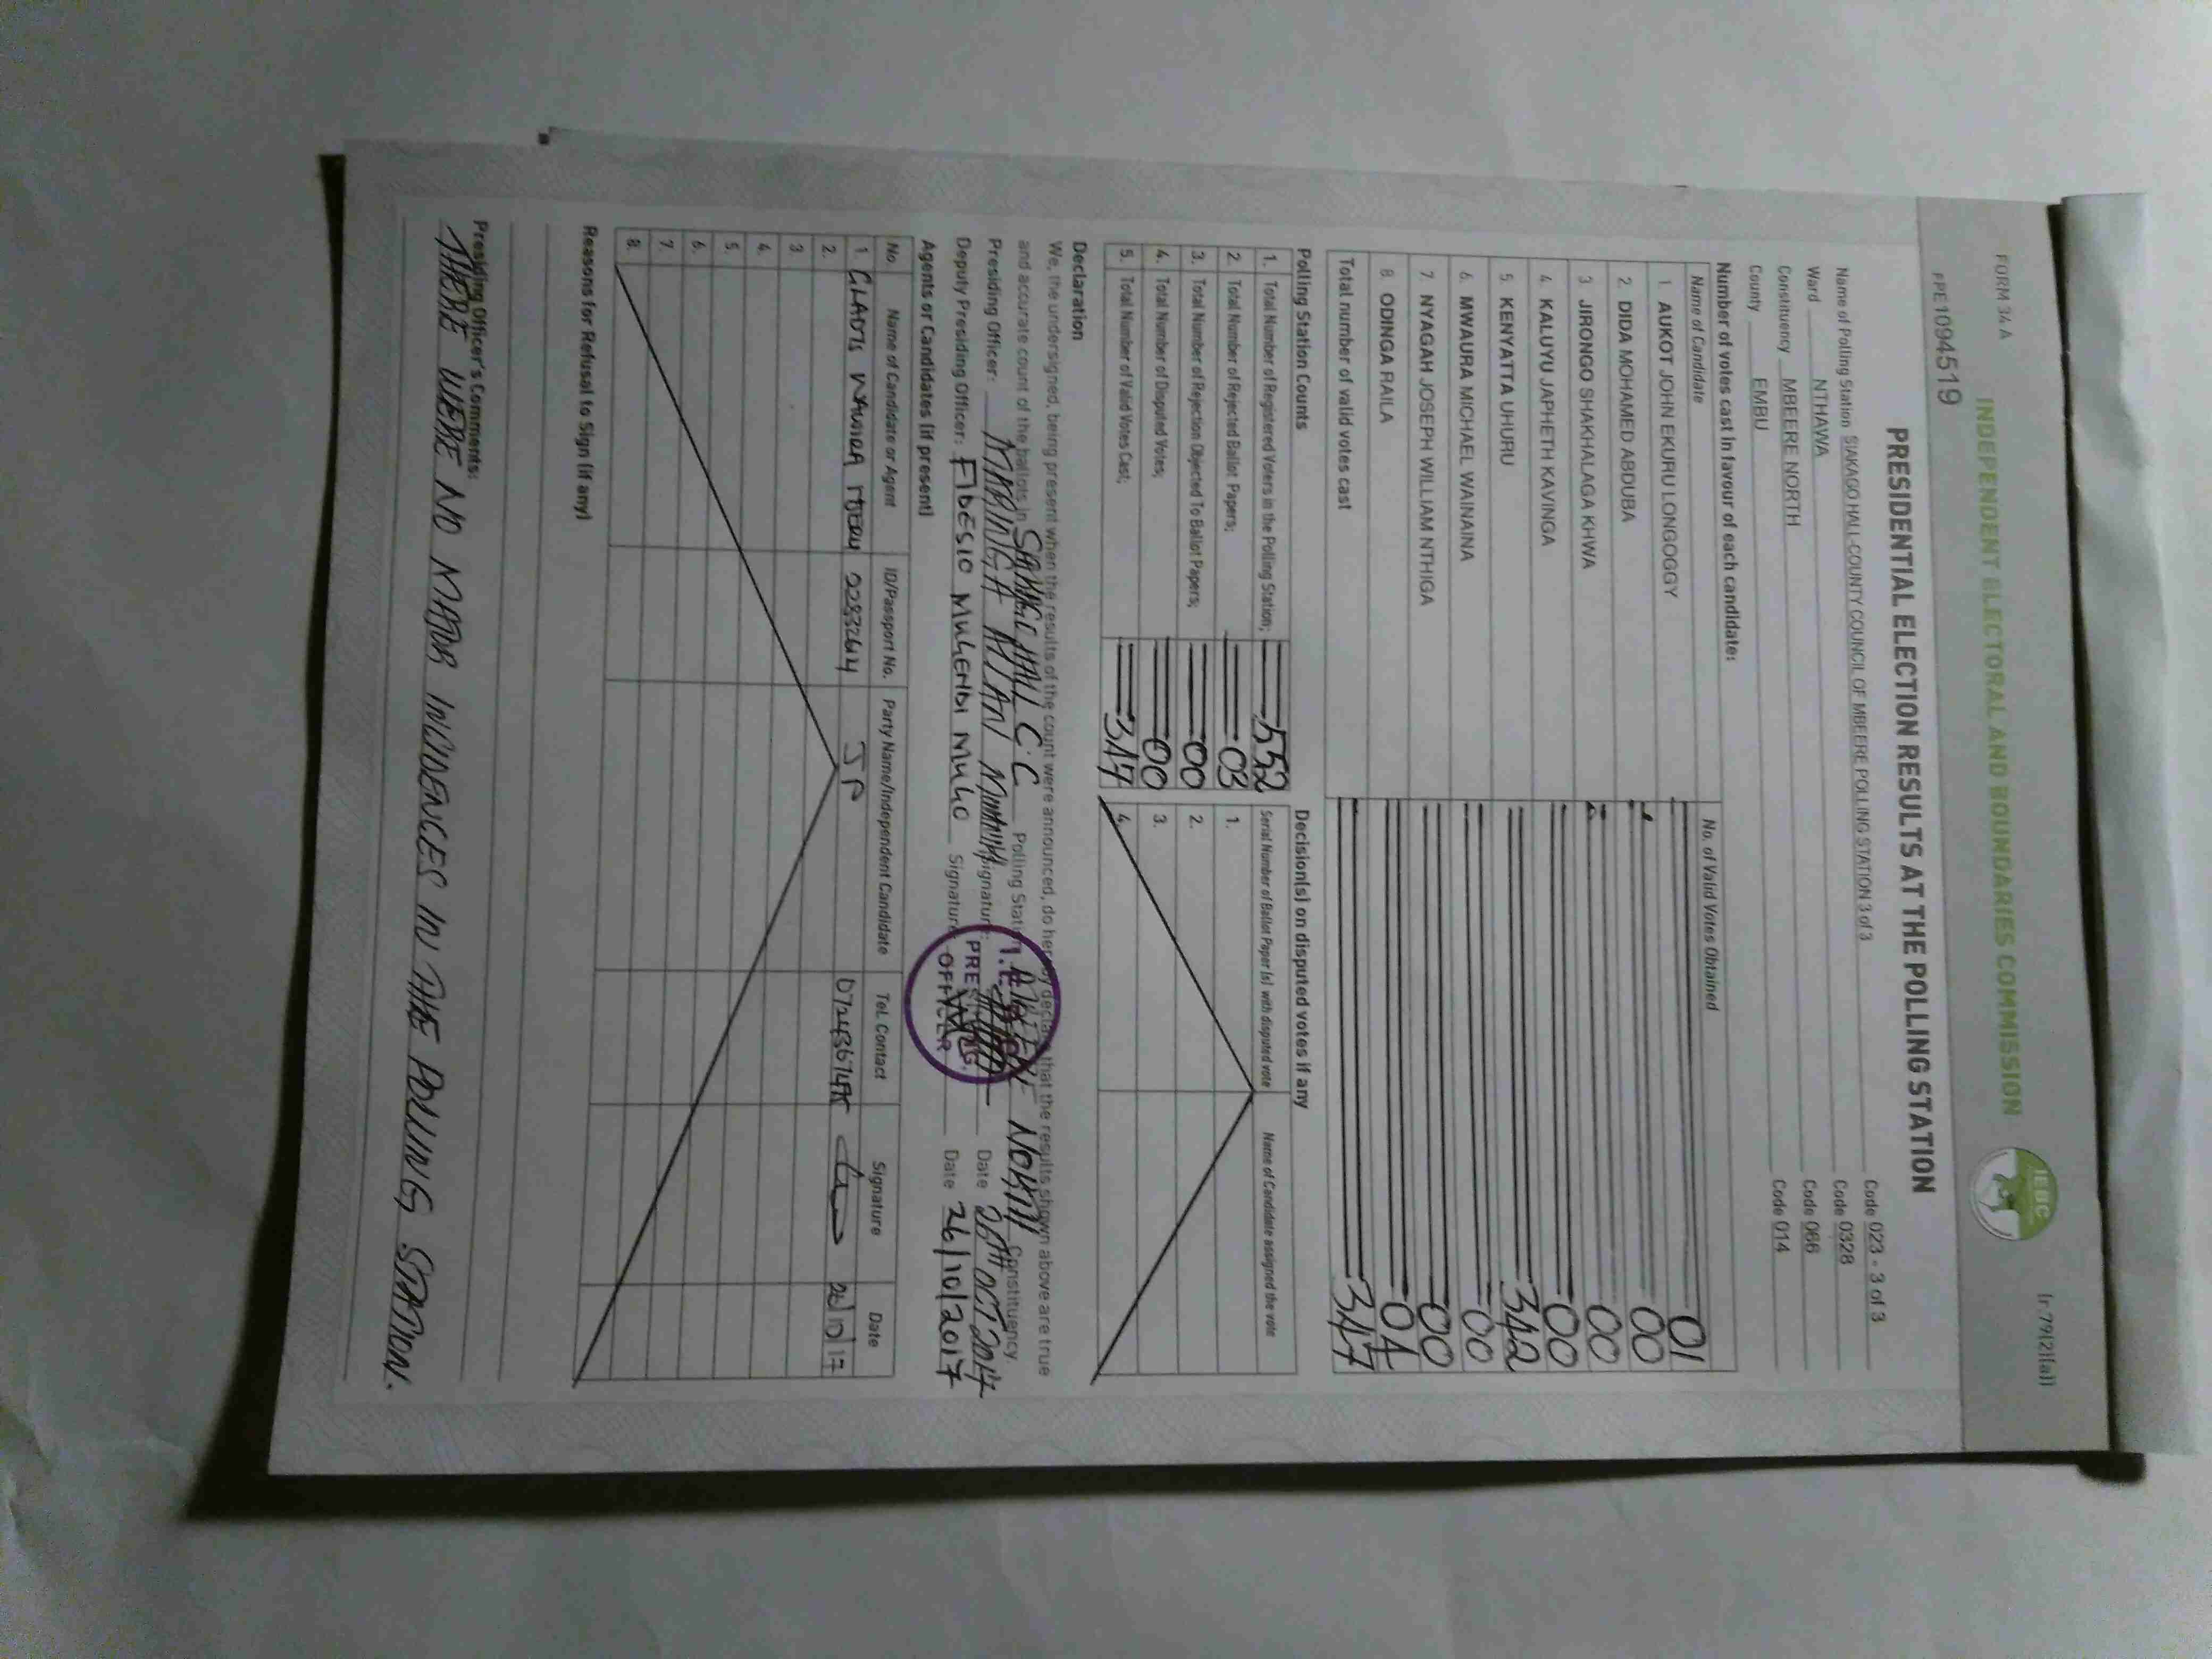 FORM 34 A
[r.79(2)(a)]
INDEPENDENT ELECTORAL AND BOUNDARIES COMMISSION
IEBC
PPE1094519
PRESIDENTIAL ELECTION RESULTS AT THE POLLING STATION
Name of Polling Station SIAKAGO HALL-COUNTY COUNCIL OF MBEERE POLLING STATION 3 of 3 Code 023 - 3 of 3
Ward NTHAWA Code 0328
Constituency MBEERE NORTH Code 066
County EMBU Code 014
Number of votes cast in favour of each candidate:
Name of Candidate No. of Valid Votes Obtained
1. AUKOT JOHN EKURU LONGOGGY 01
2. DIDA MOHAMED ABDUBA 00
3. JIRONGO SHAKHALAGA KHWA 00
4. KALUYU JAPHETH KAVINGA 00
5. KENYATTA UHURU 342
6. MWAURA MICHAEL WAINAINA 00
7. NYAGAH JOSEPH WILLIAM NTHIGA 00
8. ODINGA RAILA 04
Total number of valid votes cast 347
Polling Station Counts
1. Total Number of Registered Voters in the Polling Station; 552
2. Total Number of Rejected Ballot Papers; 03
3. Total Number of Rejection Objected To Ballot Papers; 00
4. Total Number of Disputed Votes; 00
5. Total Number of Valid Votes Cast; 347
Decision(s) on disputed votes if any
Serial Number of Ballot Paper (s) with disputed vote Name of Candidate assigned the vote
1.
2.
3.
4.
Declaration
We, the undersigned, being present when the results of the count were announced, do hereby declare that the results shown above are true
and accurate count of the ballots in SIAKAGO HALL C.C Polling Station NORTH Constituency.
Presiding Officer: ALAN Signature: Date 26TH OCT 2017
Deputy Presiding Officer: FIDESIO MUGENDI MUGO Signature Date 26/10/2017
PRESIDING OFFICER
Agents or Candidates (if present)
No. Name of Candidate or Agent ID/Passport No. Party Name/Independent Candidate Tel. Contact Signature Date
1. GLADYS WAURA JP 26/10/17
2.
3.
4.
5.
6.
7.
8.
Reasons for Refusal to Sign (if any)
Presiding Officer's Comments:
THERE WERE NO MAJOR INCIDENCES IN THE POLLING STATION.